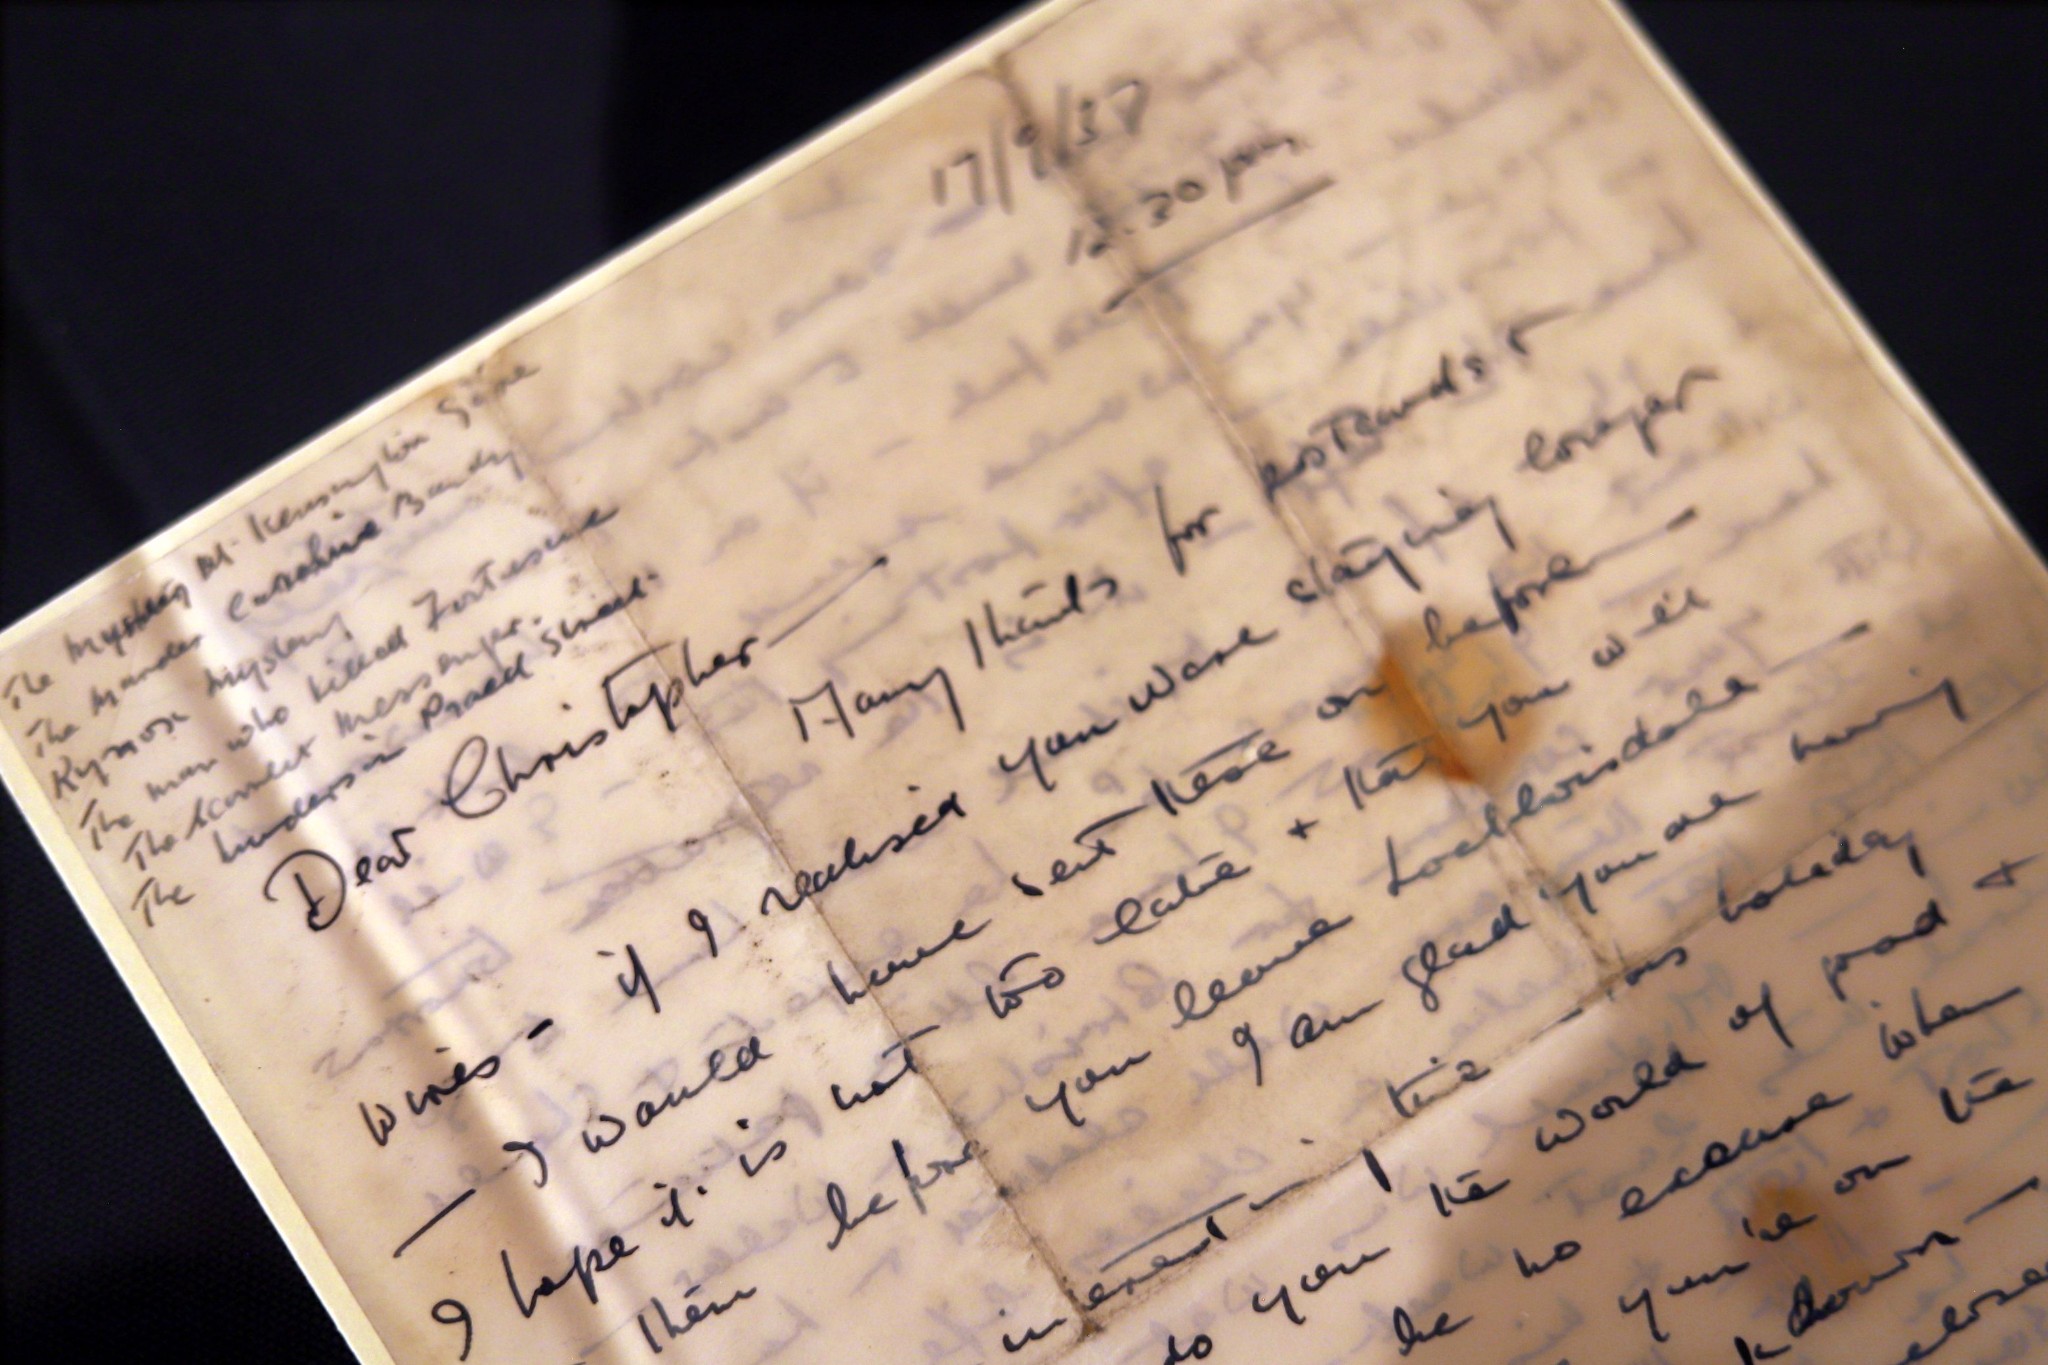 17/9/37
12.30 pm
The Mystery
The Murder Caroline Bundy
mystery
The man who killed Fortescue
The Scarlet Messenger.
The Murders in Praed Street.
Dear Christopher —
Many thanks for postcards &
wires - if I realised you were staying longer
— I would have sent these on before —
I hope it is not too late + that you will
them before you leave Lochboisdale —
I am glad you are having
this holiday
do you the world of good +
be no excuse when
you're on the
down —